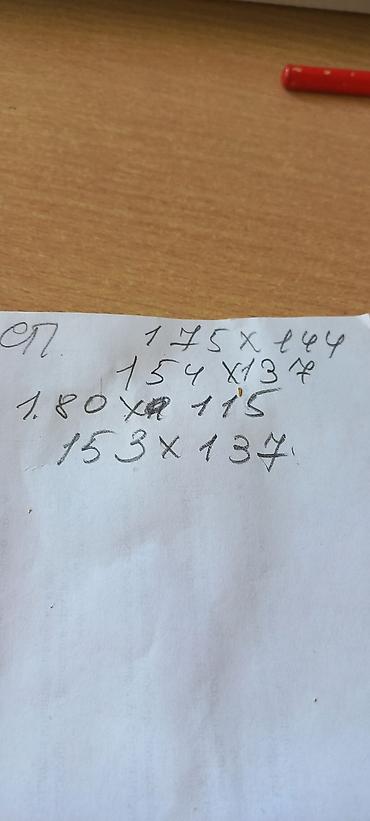 СП. 175 x 144
154 x 137
1.80 x 115
153 x 137.